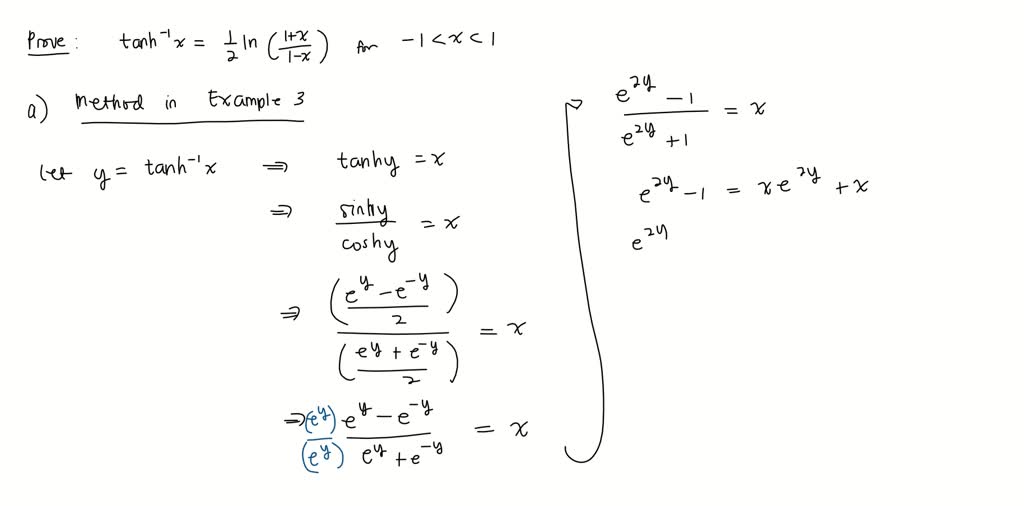 Prove: tanh⁻¹x = 1/2 ln((1+x)/(1-x)) for -1 < x < 1
a) Method in Example 3
let y = tanh⁻¹x ⇒ tanhy = x
⇒ sinhy/coshy = x
⇒ ((e^y - e^-y)/2)/((e^y + e^-y)/2) = x
⇒ (e^y)/(e^y) (e^y - e^-y)/(e^y + e^-y) = x
(e^2y - 1)/(e^2y + 1) = x
e^2y - 1 = xe^2y + x
e^2y